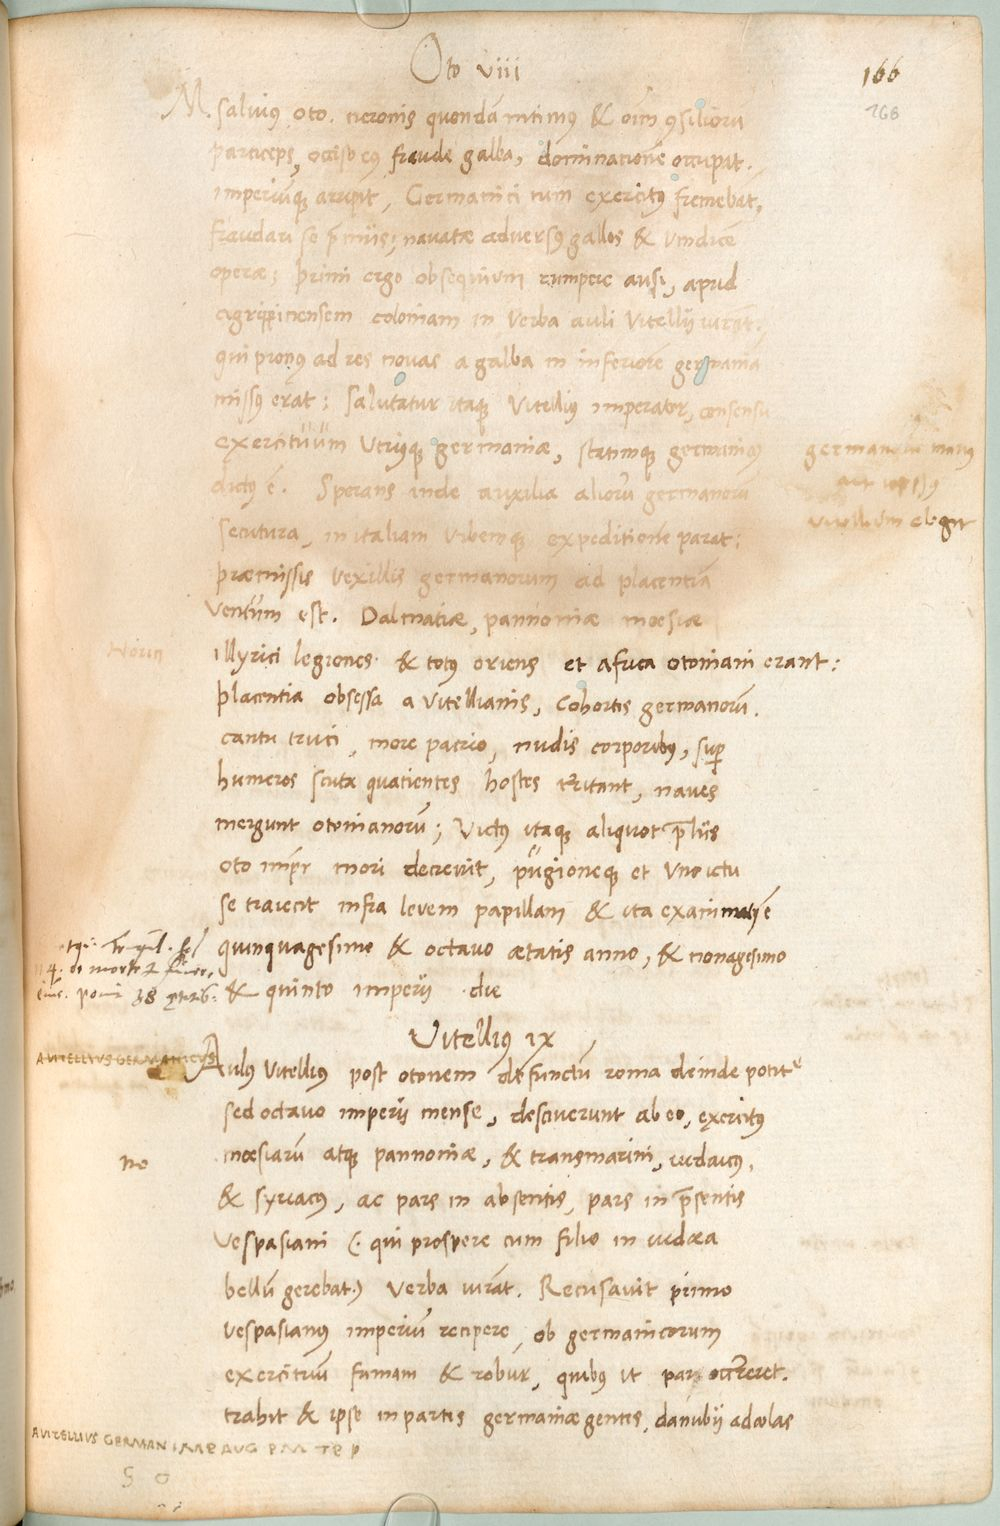 Oto viii
166
168
M. salvius oto. neronis quondā intimus & oīm ɔsiliorū
particeps, occiso eius fraude galba, dominationē occupat.
imperiūq̃ arripit, Germanici tum exercitus fremebat,
fraudari se p̄miis; navatae adversus gallos & vindicē
operae; primi ergo obsequium rumpere ausi, apud
agrippinensem coloniam in verba auli Vitellii iurāt.
qui pronus ad res novas a galba in inferiorē germania
missus erat: salutatur itaq̃ Vitellius imperator, consensu
exercituūm utriusq̃ germaniae, statimq̃ germanicus
dictus ē. Sperans inde auxilia aliorū germanorū
secutura, in italiam urbemq̃ expeditionē parat:
praemissis vexillis germanorum ad placentiā
ventum est. Dalmatiae, pannoniae moesiae
germanicus
vitellium elegit
illyrici legiones & totus oriens et africa otoniani erant:
placentia obsessa a vitellianis, cohortes germanorū.
cantu truci, more patrio, nudis corporibus, sup̄
humeros scuta quatientes hostes irritant, naves
mergunt otonianorū; Victus itaq̃ aliquot p̄liis
oto imp̄r mori decrevit, pugioneq̃ et uno ictu
se traiecit infra levem papillam & ita examinatus ē
quinquagesimo & octavo aetatis anno, & nonagesimo
& quinto imperii die
Vitellius ix
A VITELLIVS GERMANICVS
Aulus Vitellius post otonem defunctū roma deinde potitᵉ
sed octavo imperii mense, desciverunt ab eo, exercitus
moesiarū atq̃ pannoniae, & transmarini, iudaicus,
no
& syriacus, ac pars in absentis, pars in p̄sentis
Vespasiani (. qui prospere cum filio in iudaea
bellū gerebat.) verba iurāt. Recusavit primo
vespasianus imperiū recipere, ob germanicorum
exercituū famam & robur, quibus ut par occurreret.
trahit & ipse in partes germaniae gentes, danubii adcolas
A VITELLIVS GERMAN IMP AVG P M TR P
S C